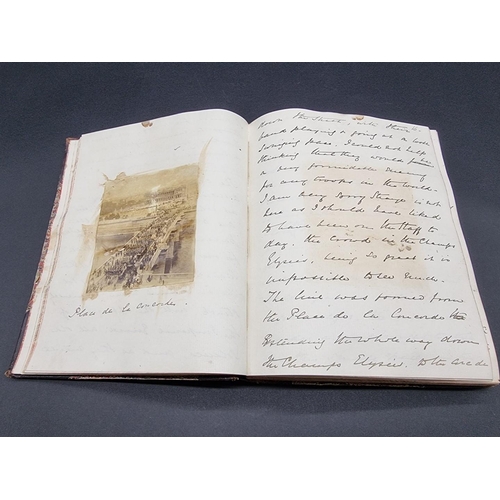 Place de la Concorde.
down the Street, with their
band playing & going at a
swinging pace. I could not help
thinking that they would prove
a very formidable enemy
for any troops in the world.
I am very sorry Strange is not
here as I should have liked
to have been on the Staff to
day, the crowd in the Champs
Elysées, being so great it is
impossible to see much.
The line was formed from
the Place de la Concorde
Extending the whole way down
the Champs Elysées. to the